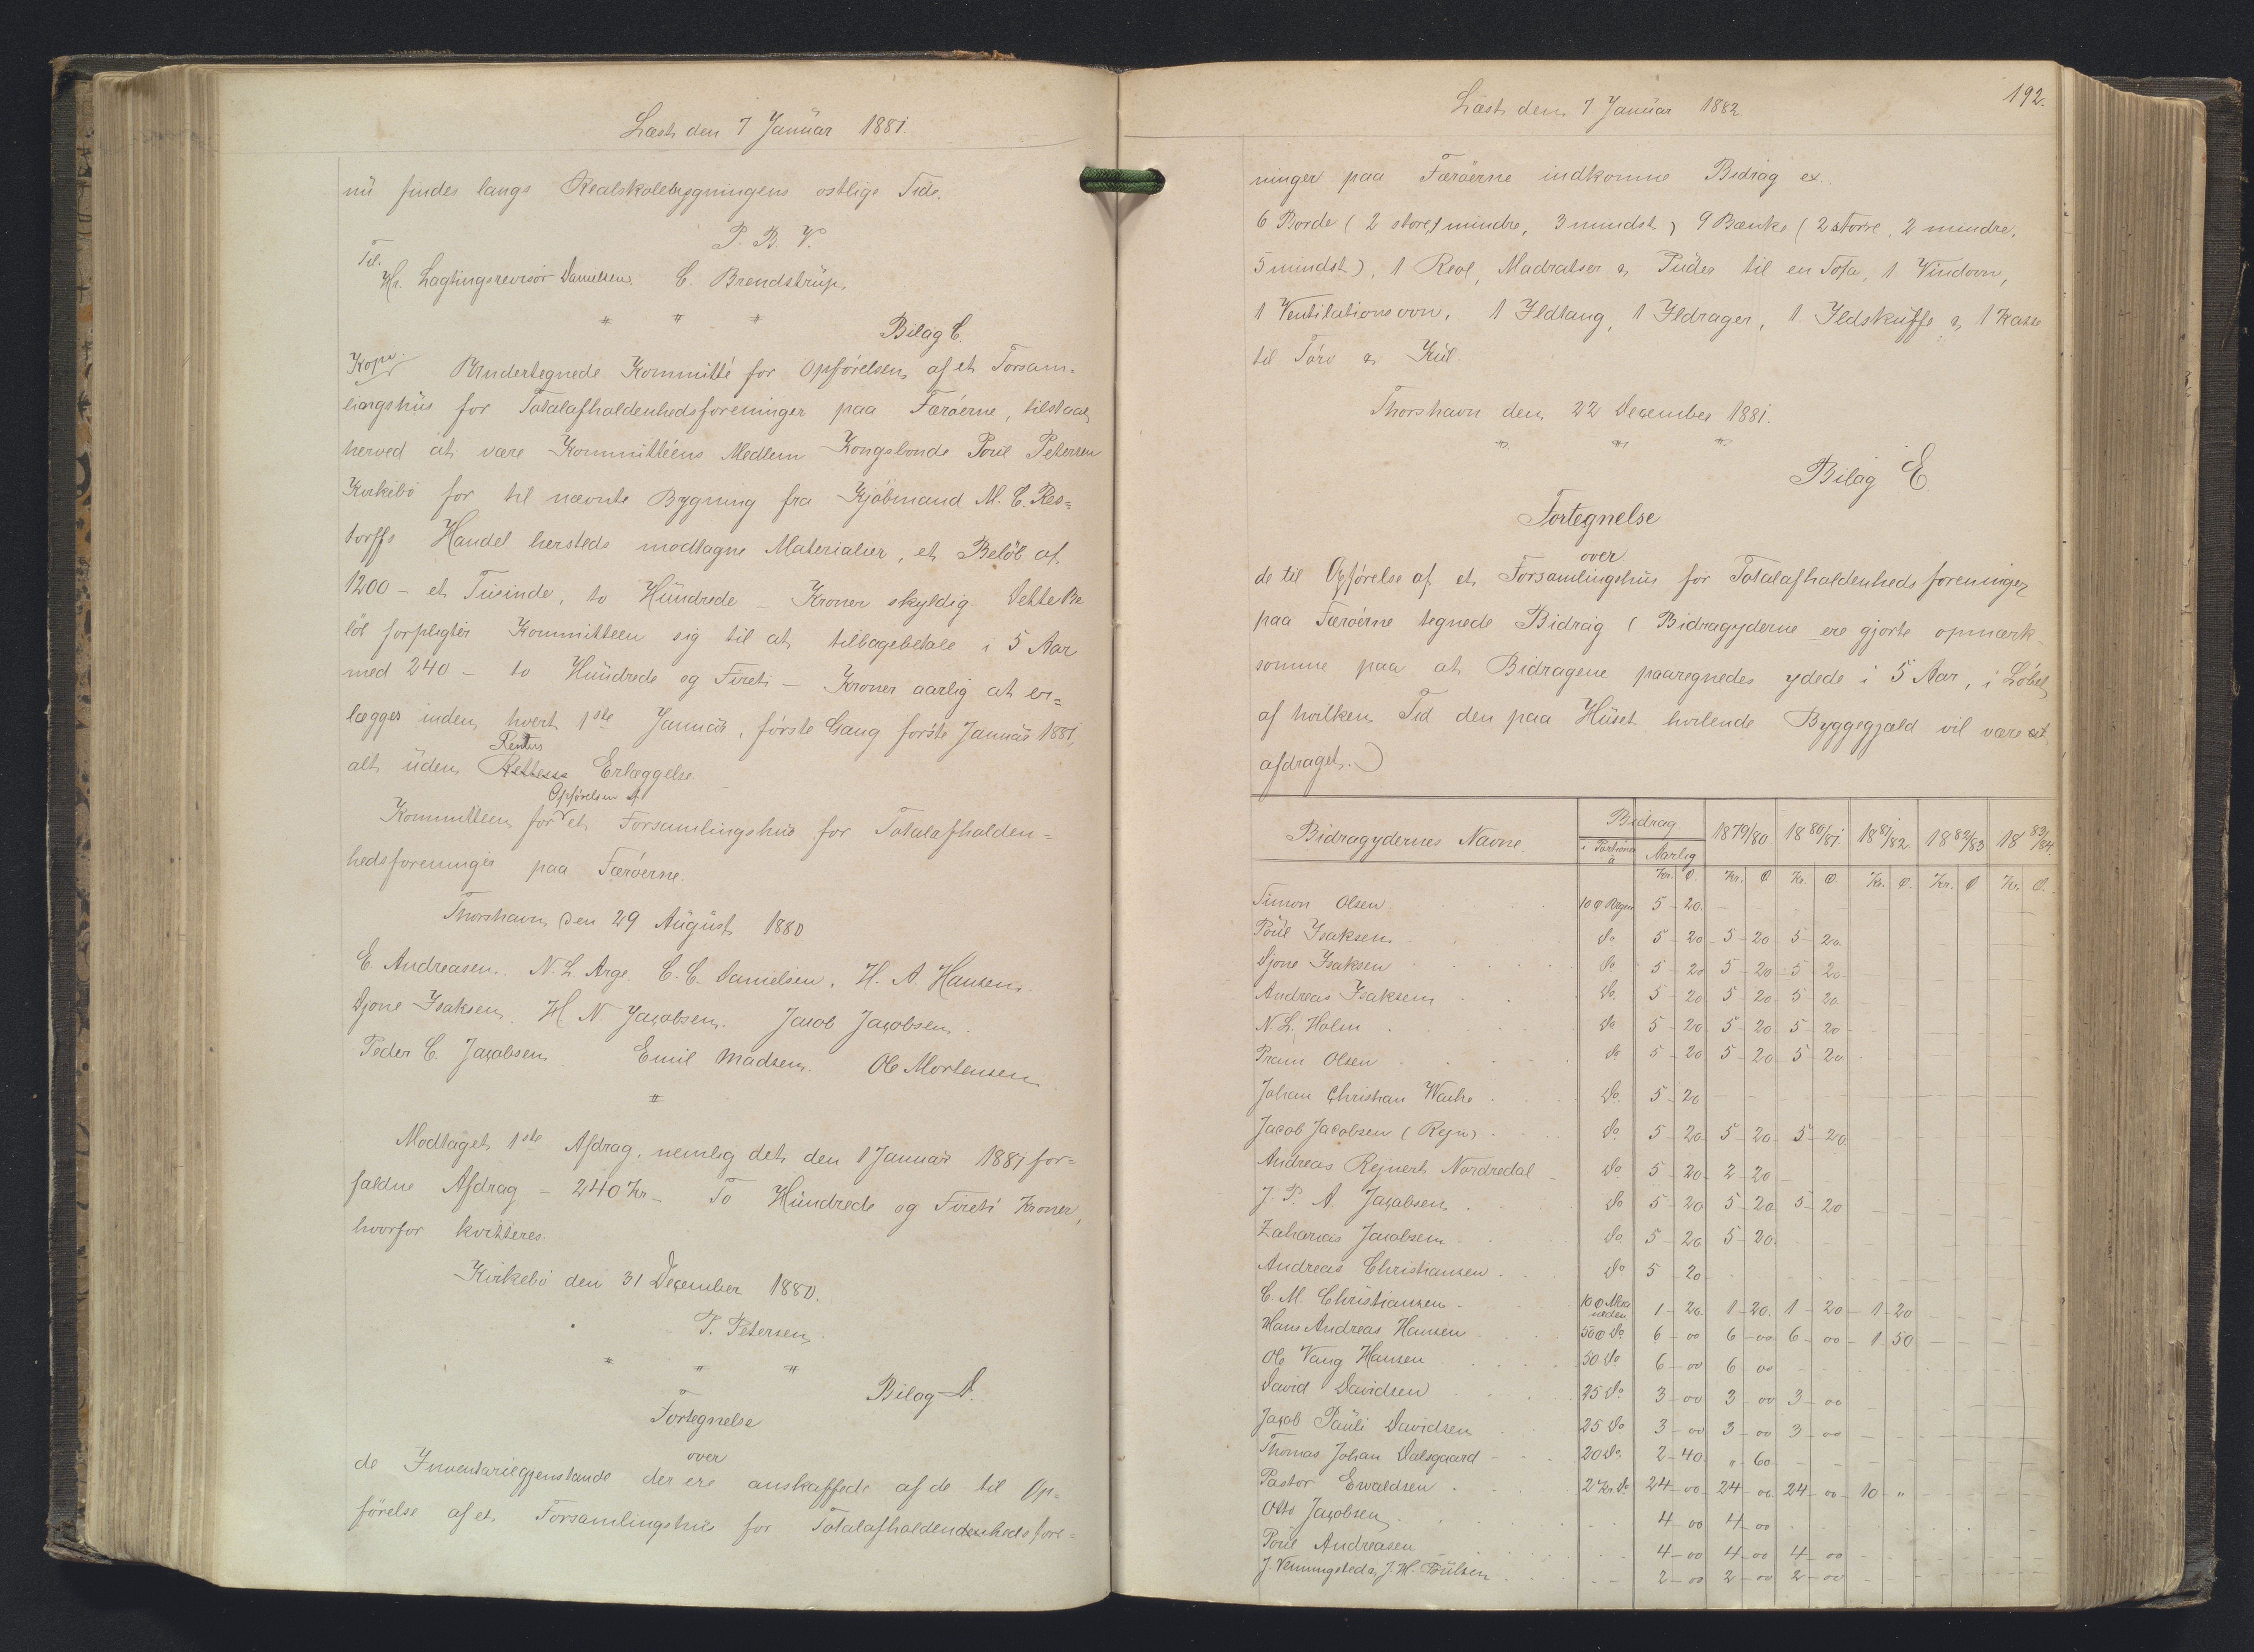 Læst den 7 Januar 1881.
nu findes langs Realskolebygningens østlige Side.
P. B. V.
Til
Hr. Lagtingsrevisor Danielsen. C. Brendstrup.
" " "
Bilag C.
Kopi Undertegnede Kommitté for Opførelsen af et Forsam=
lingshus for Totalafholdenhedsforeninger paa Færøerne, tilstaar
herved at være Kommittéens Medlem Kongsbonde Poul Petersen
Kirkebø for til nævnte Bygning fra Kjøbmand M. C. Res=
torffs Handel hersteds modtagne Materialier, et Beløb af
1200 – et Tusinde, to Hundrede – Kroner skyldig. Dette Be
løb forpligter Kommitteen sig til at tilbagebetale i 5 Aar
med 240 – to Hundrede og Fireti – Kroner aarlig at er=
lægges inden hvert 1ste Januar, første Gang første Januar 1881,
Renters
alt uden Erlæggelse
Opførelsen af
Kommitteen for et Forsamlingshus for Totalafholden=
hedsforeninger paa Færøerne.
Thorshavn den 29 August 1880
E. Andreasen. N. L. Arge. C. C. Danielsen. H. A. Hansen.
Djone Isaksen. H. N. Jacobsen. Jacob Jacobsen.
Peder C. Jacobsen Emil Madsen. Ole Mortensen.
"
Modtaget 1ste Afdrag, nemlig det den 1 Januar 1881 for=
faldne Afdrag = 240 Kr – To Hundrede og Fireti Kroner,
hvorfor kvitteres.
Kirkebø den 31 December 1880.
P. Petersen.
" " "
Bilag D.
Fortegnelse
over
de Inventariegjenstande der ere anskaffede af de til Op=
førelse af et Forsamlingshus for Totalafholdendenhedsfore=
192.
Læst den 7 Januar 1882.
ninger paa Færøerne indkomne Bidrag ex.
6 Borde (2 store, 1 mindre, 3 mindst) 9 Bænke (2 større, 2 mindre,
5 mindst), 1 Reol, Madratser & Puder til en Sofa, 1 Vindovn,
1 Ventilationsovn, 1 Ildtang, 1 Ildrager, 1 Ildskuffe & 1 Kasse
til Tørv & Kul.
Thorshavn den 22 December 1881.
" " "
Bilag E.
Fortegnelse
over
de til Opførelse af et Forsamlingshus for Totalafholdenhedsforeninger
paa Færøerne tegnede Bidrag (Bidragyderne ere gjorte opmærk
somme paa at Bidragene paaregnedes ydede i 5 Aar, i Løbet
af hvilken Tid den paa Huset hvilende Byggegjæld vil være
afdraget.)
Bidragydernes Navne. Bidrag 1879/80 1880/81 1881/82 1882/83 1883/84.
Aarlig
Kr. Ø. Kr. Ø Kr. Ø. Kr. Ø. Kr. Ø Kr. Ø.
Simon Olsen 5 20.
Poul Isaksen Do 5 20 5 20 5 20
Djone Isaksen Do 5 20 5 20 5 20
Andreas Isaksen Do 5 20 5 20 5 20
N. L. Holm Do 5 20 5 20 5 20
Pram Olsen Do 5 20 5 20 5 20
Johan Christian Do 5 20
Jacob Jacobsen (Rejn) Do 5 20 5 20 5 20
Andreas Rejnert Nordredal Do 5 20 2 20
J. P. A Jacobsen Do 5 20 5 20 5 20
Zaharias Jacobsen Do 5 20 5 20
Andreas Christiansen Do 5 20
C. M. Christiansen 1 20 1 20 1 20 1 20
Hans Andreas Hansen 50 Ø Do 6 00 6 00 6 00 1 50
Ole Vang Hansen 50 Do 6 00 6 00
David Davidsen 25 Do 3 00 3 00 3 00
Jacob Pauli Davidsen 25 Do 3 00 3 00 3 00
Thomas Johan Dalsgaard 20 Do 2 40 " 60
Pastor Ewaldsen 2 Kr. Do 24 00 24 00 24 00 10 "
Otto Jacobsen 4 00 4 00
Poul Andreasen 4 00 4 00 4 00
J. Venningsted & J. H. Poulsen 2 00 2 00 2 00